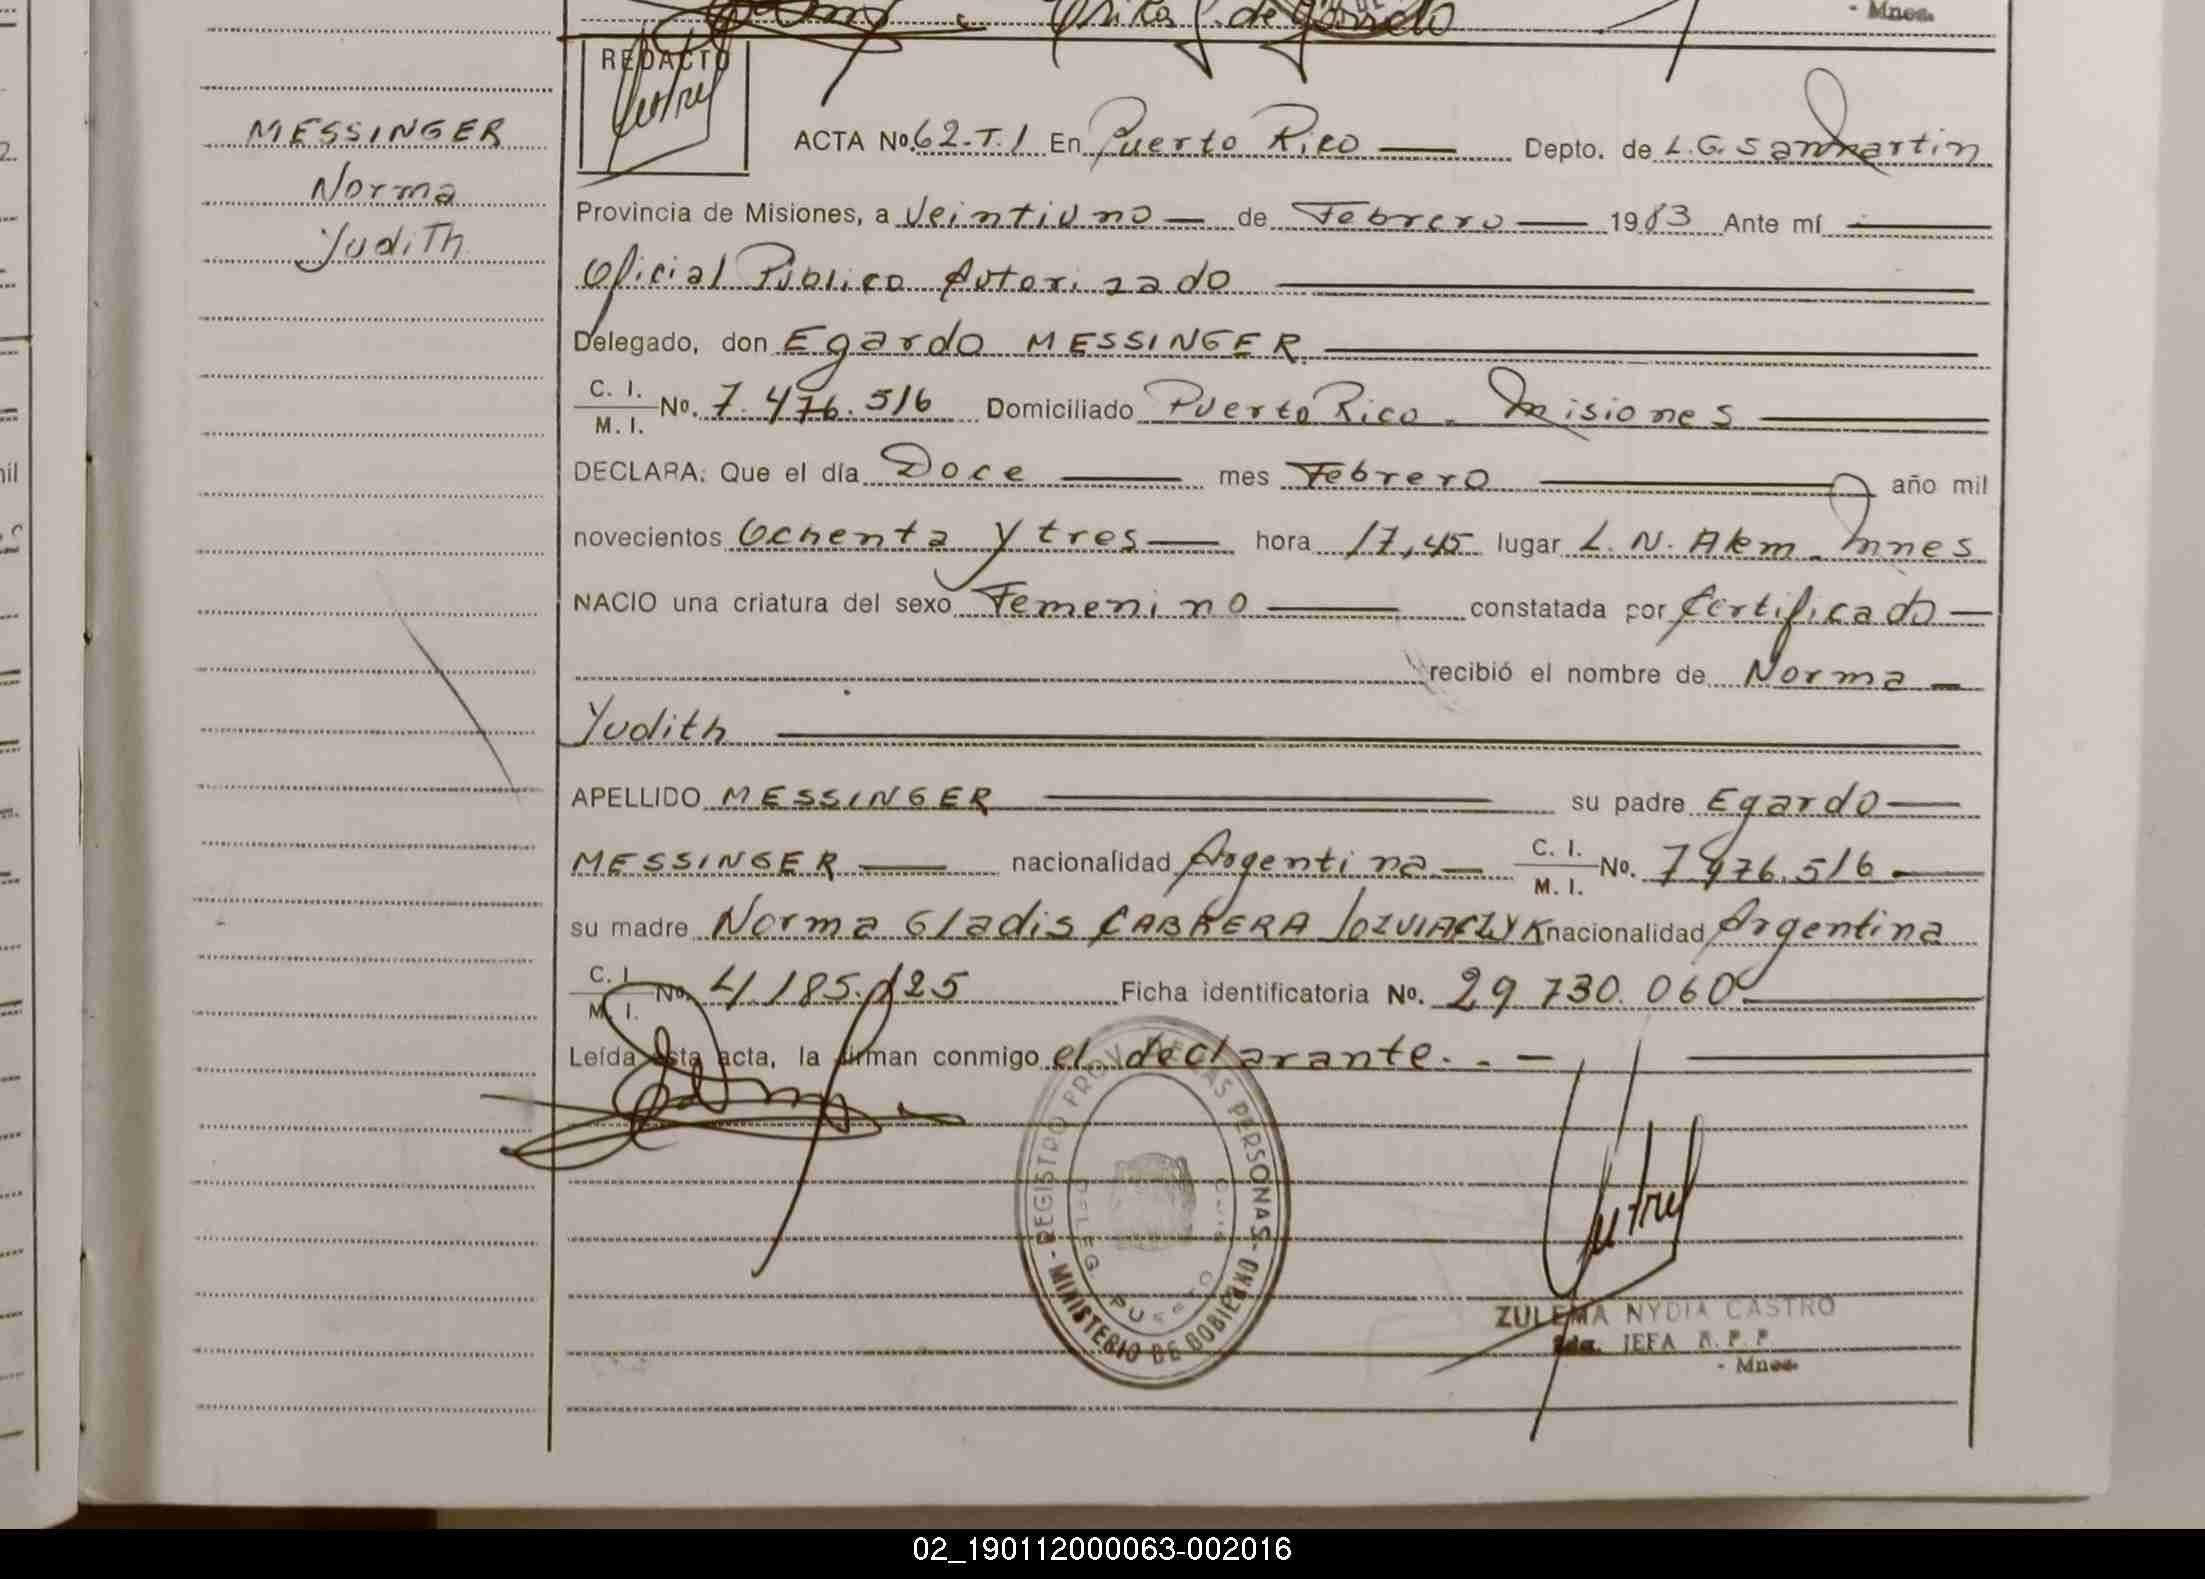 - Mnes.
REDACTO
MESSINGER
Norma
Yudith
ACTA No. 62-T.1 En Puerto Rico Depto. de L.G. San Martin
Provincia de Misiones, a Veintiuno de Febrero 1983 Ante mí
Oficial Público Autorizado
Delegado, don Egardo MESSINGER
C. I. M. I. No. 7.476.516 Domiciliado Puerto Rico - Misiones
DECLARA: Que el día Doce mes Febrero año mil
novecientos Ochenta y tres hora 17,45 lugar L. N. Alem - Mnes
NACIO una criatura del sexo Femenino constatada por Certificado
recibió el nombre de Norma
Yudith
APELLIDO MESSINGER su padre Egardo
MESSINGER nacionalidad Argentina C. I. M. I. No. 7 476.516
su madre Norma Gladis CABRERA nacionalidad Argentina
C. I. M. I. No. Ficha identificatoria No. 29 730.060
Leída esta acta, la firman conmigo el declarante.
REGISTRO PROV. DE LAS PERSONAS
- MINISTERIO DE GOBIERNO -
DELEG. PUERTO
ZULEMA NYDIA CASTRO
JEFA R. P. P.
- Mnes.
02_190112000063-002016